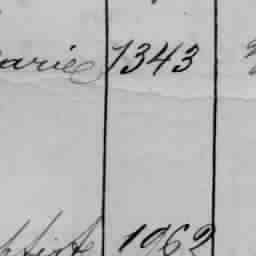 arie 1343
ptist 1962